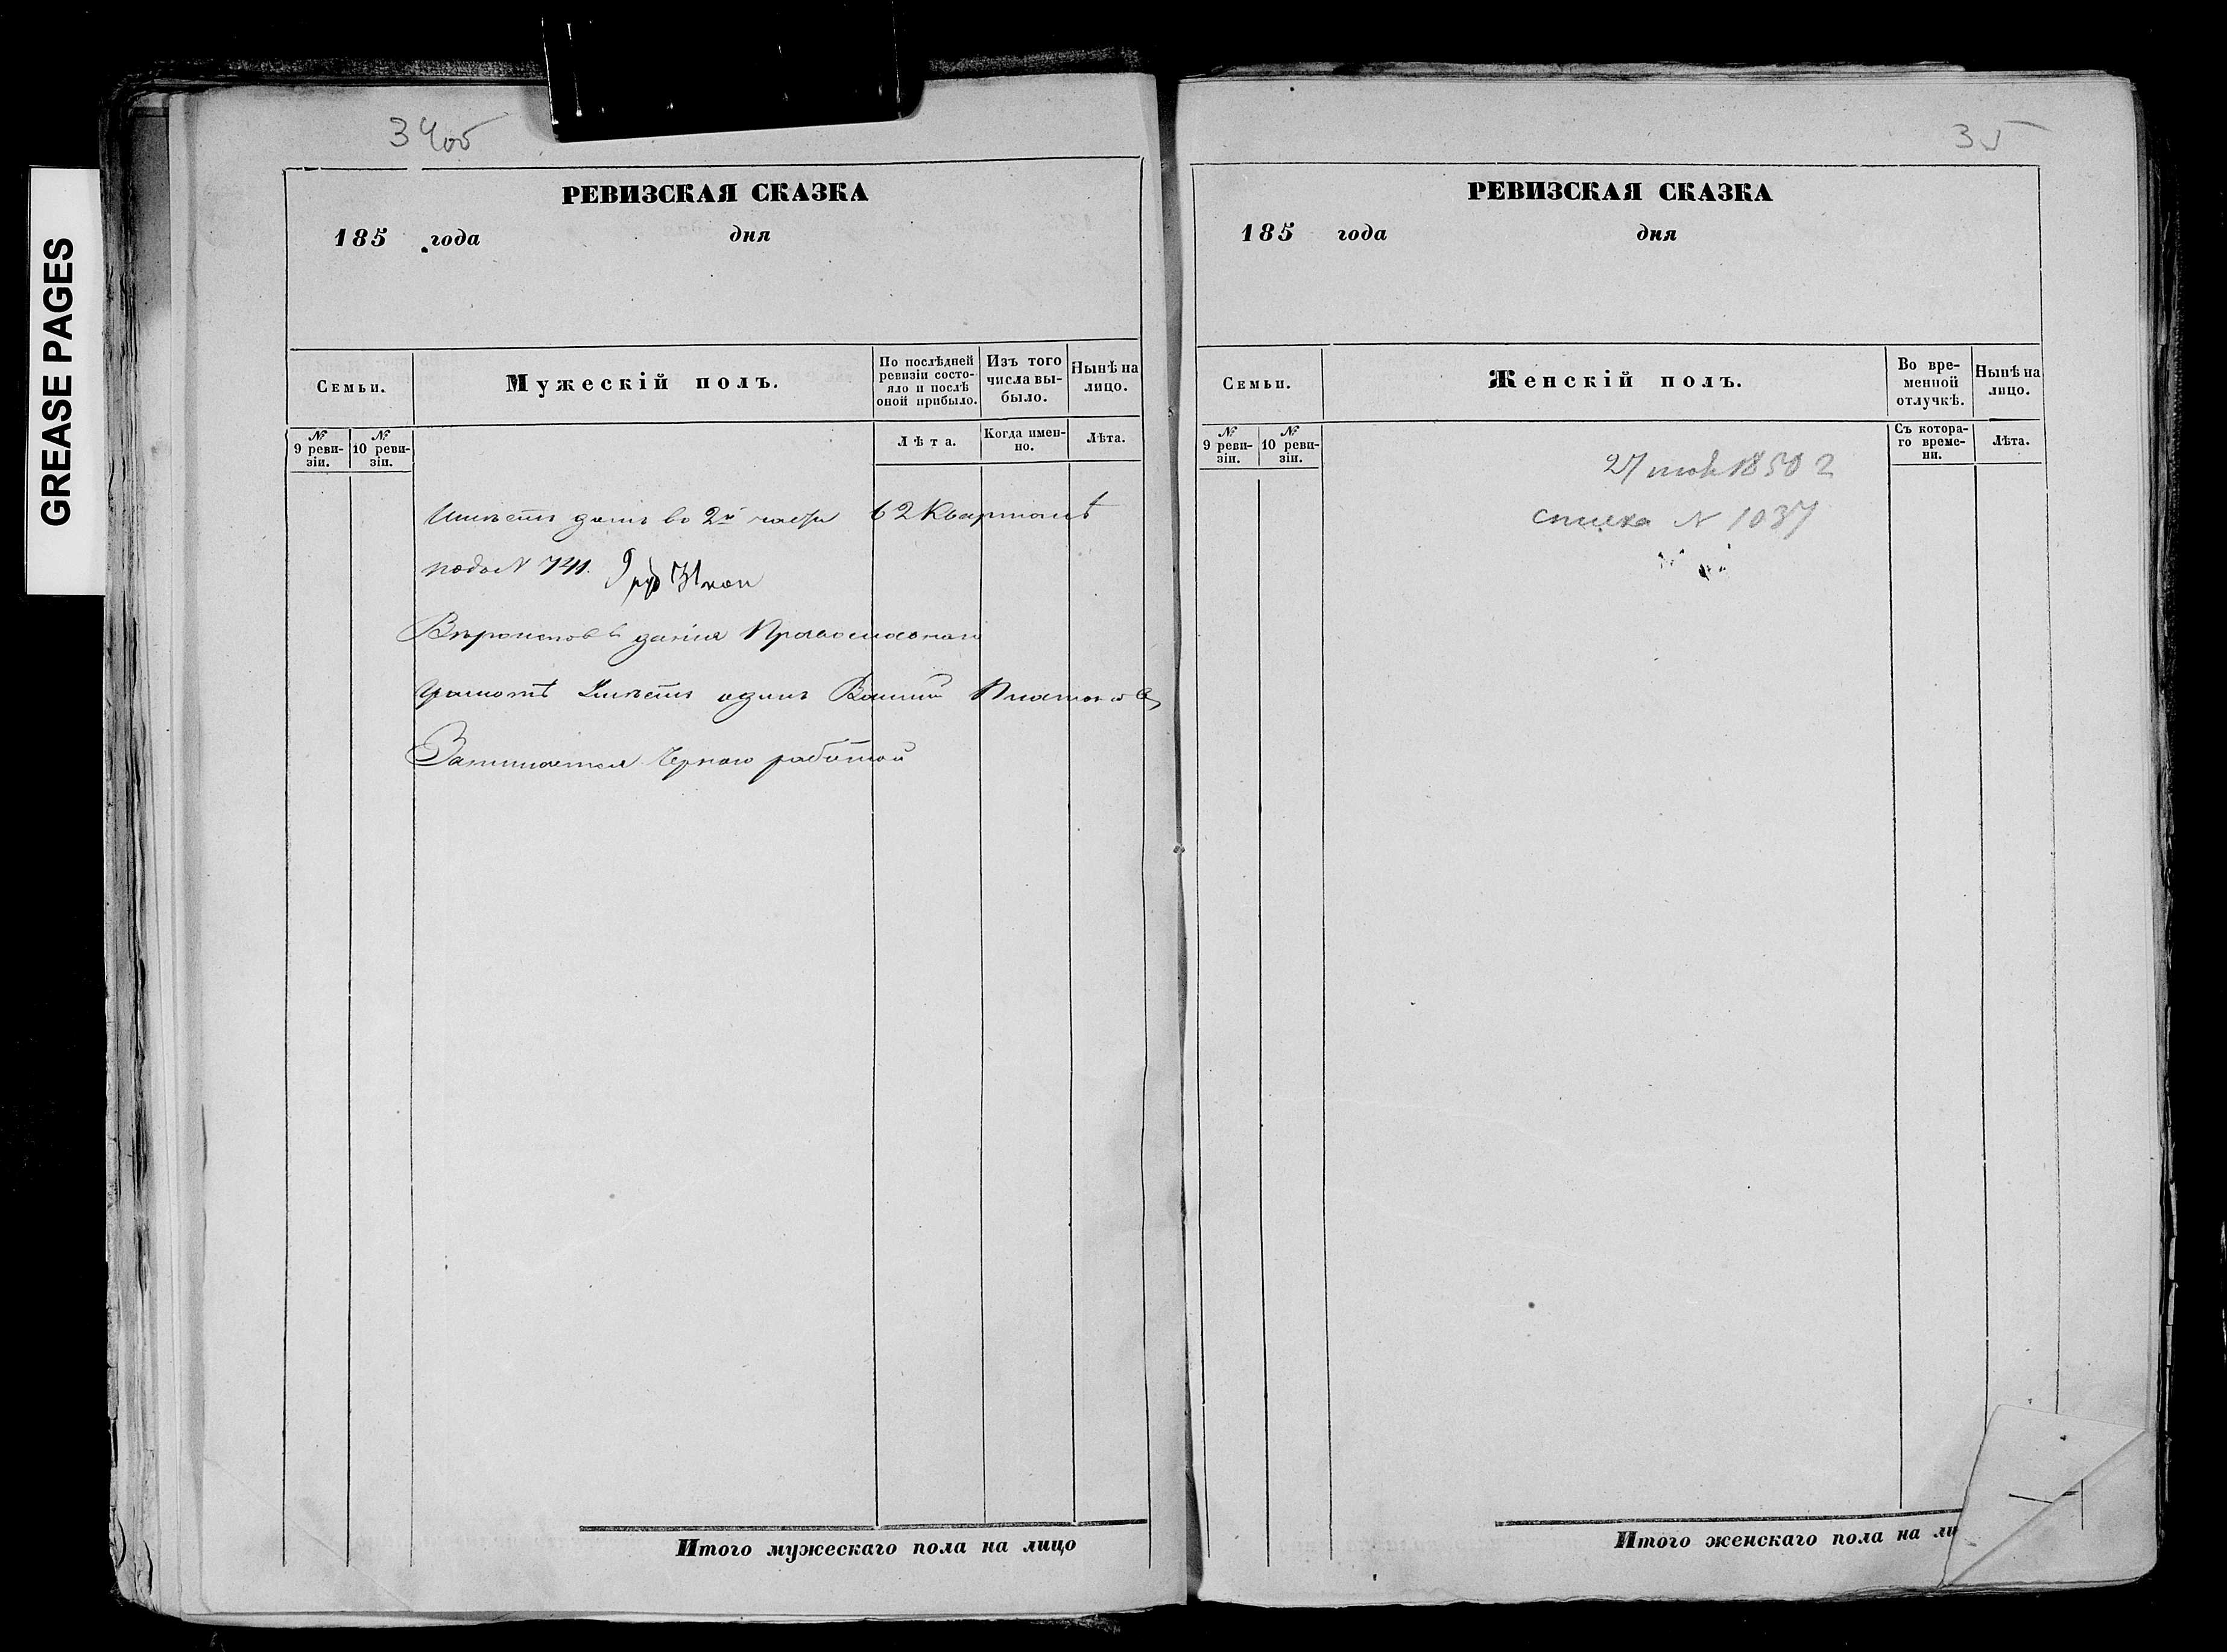 GREASE PAGES
34об
РЕВИЗСКАЯ СКАЗКА
185 года дня
Семьи.
Мужескій полъ.
По послѣдней ревизіи состояло и послѣ оной прибыло.
Изъ того числа выбыло.
Нынѣ на лицо.
№ 9 ревизіи.
№ 10 ревизіи.
Лѣта.
Когда именно.
Лѣта.
Имѣетъ домъ во 2й части 62 Кварталѣ
подъ N 741. 9 руб 31 коп
Вѣроисповѣданія Православнаго
Грамотѣ Умѣетъ одинъ Платоновъ
Занимается Черною работой
Итого мужескаго пола на лицо
35
РЕВИЗСКАЯ СКАЗКА
185 года дня
Семьи.
Женскій полъ.
Во временной отлучкѣ.
Нынѣ на лицо.
№ 9 ревизіи.
№ 10 ревизіи.
Съ котораго времени.
Лѣта.
27 1850 г
N 1037
Итого женскаго пола на ли